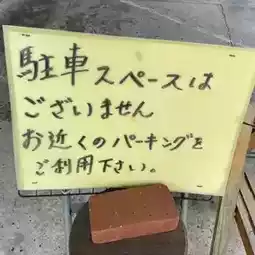 駐車スペースは
ございません
お近くのパーキングを
ご利用下さい。